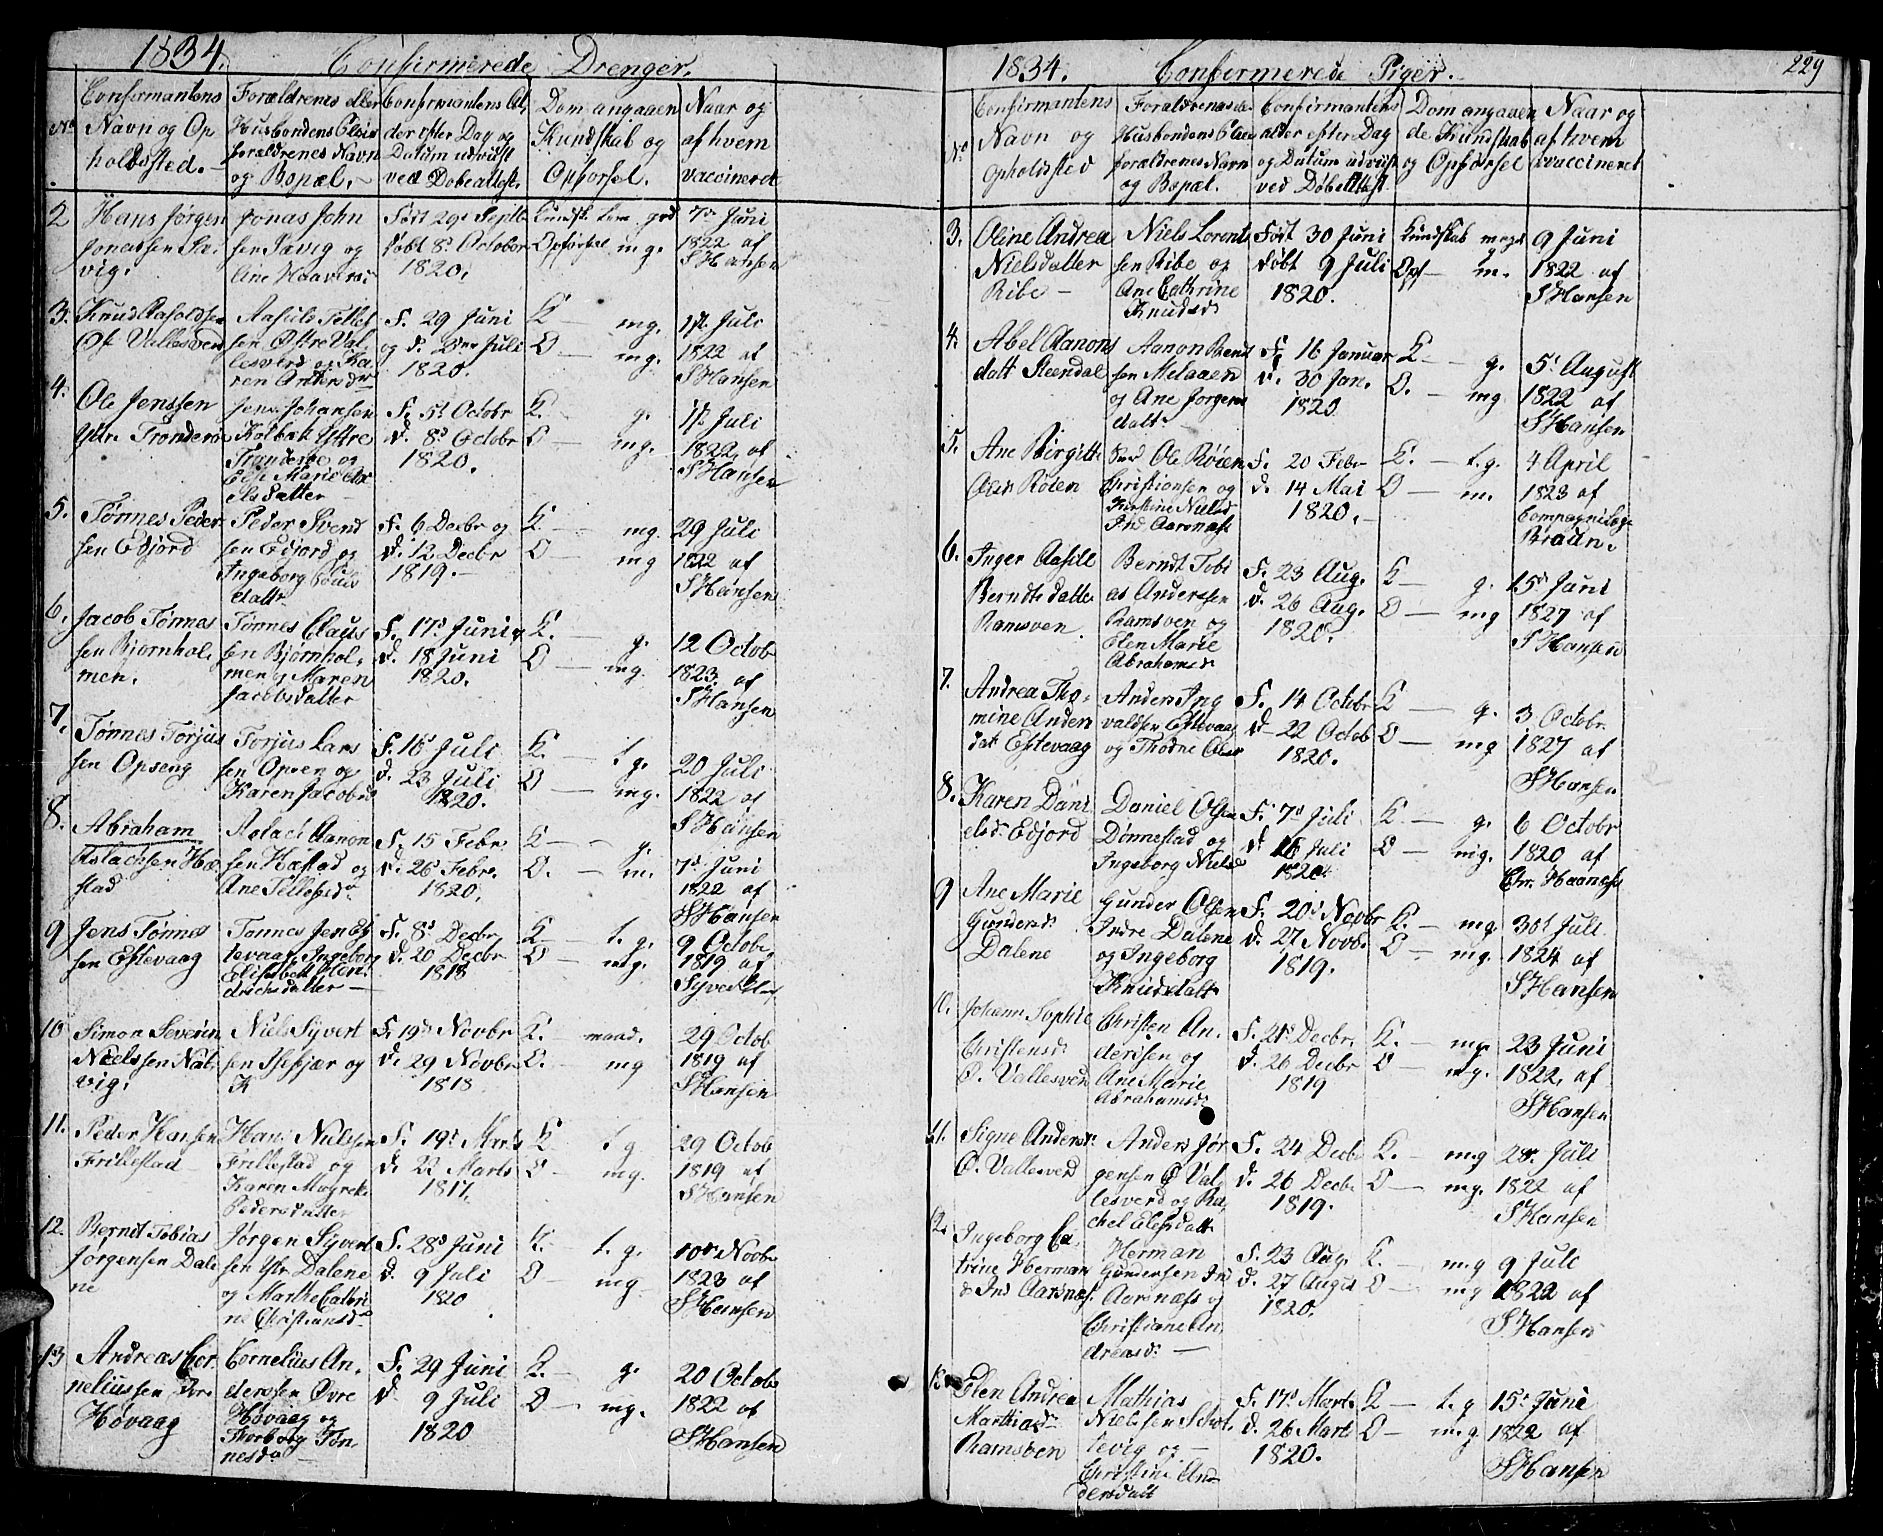 1834.
Confirmerede Drenger.
No
Confirmantens
Navn og Op
holdssted.
Forældrenes eller
Husbondens Pleie
forældrenes Navn
og Bopæl.
Confirmantens Al
der efter Dag og
Datum udviist
ved Døbeattest.
Dom angaaen
Kundskab og
Opførsel.
Naar og
af hvem
vaccineret
2
Hans Jørgen
Jonassen
vig.
Jonas John
sen og
Født 29d Septbr
døbt 8d October
1820.
Kundsk. god
Opførsel mg.
7d Juni
1822 af
S Hansen
3.
Knud
Øst Vallesverd
Aasuld Tellef
sen Østre Val
lesverd og Ka
ren
F. 29 Juni
og d. Juli
1820.
K — mg.
O — mg.
1st Juli
1822 af
S Hansen
4.
Ole Jenssen
Ytre
Jens Johansen
Ytre
og
Else Marie
datter
F. 5t Octobr
d. 8d Octobr
1820.
K. g.
O — mg.
1st Juli
1822 af
S Hansen
5.
Tønnes Peder
sen Edjord
Peder Svend
sen Edjord og
Ingeborg
datt
F. 6 Decbr og
d. 12 Decbr
1819.
K — mg.
O — mg
29 Juli
1822 af
S Hansen
6.
Jacob Tønnes
sen Bjørnhol
men.
Tønnes Claus
sen Bjørnhol
men og Maren
Jacobsdatter
F. 17d Juni
d. 18 Juni
1820.
K. — g.
O — mg.
12 Octob
1823. af
S Hansen
7.
Tønnes Torjus
sen Opseng
Torjus Lars
sen og
Karen Jacobsd
F. 16 Juli
d. 23 Juli
1820.
K — t g.
O — mg.
20 Juli
1822 af
S Hansen
8.
Abraham
Aslachsen Hæ
stad
Aslach Aanon
sen Hæstad og
Ane Tellefsd
F. 15 Febr
d. 26 Febr.
1820.
K — g.
O. — m.
7d Juni
1822 af
S Hansen
9
Jens Tønnes
sen Eftevaag
Tønnes Jens Ef
tevaag Ingeborg
Elisabeth
datter
F. 8d Decbr
d. 20 Decbr
1818
K — t. g.
O — mg.
9 Octobr
1819 af
10
Simon Severin
Nielssen
vig.
Niels Syvert
sen og
K
F. 19d Novbr
d. 29 Novbr
1818
K. — maad.
O. mg
29 Octob
1819 af
S Hansen
11.
Peder Hansen
Frillestad
Hans Nielsen
Frillestad og
Karen Margrete
Pedersdatter
F. 19d Marts
d. 22 Marts
1817.
K t g
O — mg.
29 Octob
1819 af
S Hansen
12.
Bernt Tobias
Jørgensen Dale
ne
Jørgen Syvert
sen Ytr Dalene
og Marthe Cathri
ne Christiansd
F. 28d Juni
d. 9 Juli
1820
K. — t. g.
O — mg
10d Novbr
1823 af
S Hansen
13
Andreas Cor
neliussen
Høvaag
Cornelius An
derssen Øvre
Høvaag og
Thorborg Tøn
nesd
F. 29 Juni
d. 9 Juli
1820
K. — g.
O — mg.
20 Octobr
1822 af
S Hansen
1834.
Confirmerede Piger.
229
No
Confirmantens
Navn og
Opholdssted
Forældrenes eller
Husbondens Pleie
forældrenes Navn
og Bopæl.
Confirmantens
alder efter Dag
og Datum udviist
ved Døbeattest
Dom angaaen
de Kundskab
og Opførsel
Naar og
af hvem
vaccineret
3.
Oline Andrea
Nielsdatter
Ribe
Niels Lorents
sen Ribe og
Ane Cathrine
Knudsd
Født 30 Juni
døbt 9 Juli
1820.
Kundskab meget
g
Opf — m.
9 Juni
1822 af
S Hansen
4.
Abel Aanons
datt Steendal
Aanon Bent
sen Melaaen
og Ane Jørgens
datt
F. 16 Januar
d. 30 Jan.
1820
K. — g.
O. — mg
5t August
1822 af
S Hansen
5.
Ane Birgitte
Olsd Røien
Ole Røien
Christiansen og
Kirstine Nielsd
Ind Aarsnæs
F. 20 Febr
d. 14 Mai
1820.
K. — t. g.
O — m.
4 April
1823 af
Compagnilæge
Braun.
6.
Inger Aasill
Berndtsdatter
Ramsven
Berndt Tobi
as Anderssen
Ramsven og
Elen Marie
Abrahamsd
F. 23 Aug.
d. 26 Aug.
1820.
K — g.
O — mg
15d Juni
1827 af
S Hansen
7.
Andrea Tho
mine Anders
dat Eftevaag
Anders Ing
valdsen Eftevaag
og Thorine
F. 14 Octobr
d. 22 Octob
1820.
K — g.
O — mg
3 Octobr
1827 af
S Hansen
8.
Karen Dani
elsd. Edjord
Daniel Olsen
Dønnestad og
Ingeborg Nielsd
F. 7d Juli
d. 16 Juli
1820
K. — g.
O — mg.
6 Octobr
1820 af
Chr. Haanæs
9
Ane Marie
Gundersd.
Dalene
Gunder Olsen
Indre Dalene
og Ingeborg
Knudsdatt
F. 20d Novbr
d. 27 Novb.
1819.
K. — mg.
O — mg.
30t Juli
1824 af
S Hansen
10.
Johann Sophie
Christensd.
Ø. Vallesverd
Christen An
derssen og
Ane Marie
Abrahamsd
F. 21d Decbr.
d. 26 Decbr
1819
K. — mg.
O — mg.
23 Juni
1822 af
S Hansen
11.
Signe Andersd.
Ø. Vallesverd
Anders Jør
gensen Ø Val
lesverd og Ra
chel Olesdatt
F. 24 Decb
d. 26 Decbr
1819.
K. — mg
O — mg.
28. Juli
1822 af
S Hansen
12.
Ingeborg Ca
trine Herman
d Ind Aarsnæs
Herman
Gundersen Ind
Aarsnæs og
Christiane An
dreasd.
F. 23 Aug.
d. 27 August
1820.
K. — m.g
O — mg
9 Juli
1822 af
S Hansen
13
Elen Andrea
Mathiasd
Ramsven
Mathias
Nielssen
tevig og
Christine An
dersdatt
F. 17d Marts
d. 26 Marts
1820.
K — t. g
O — m.g
15d Juni
1822 af
S Hansen